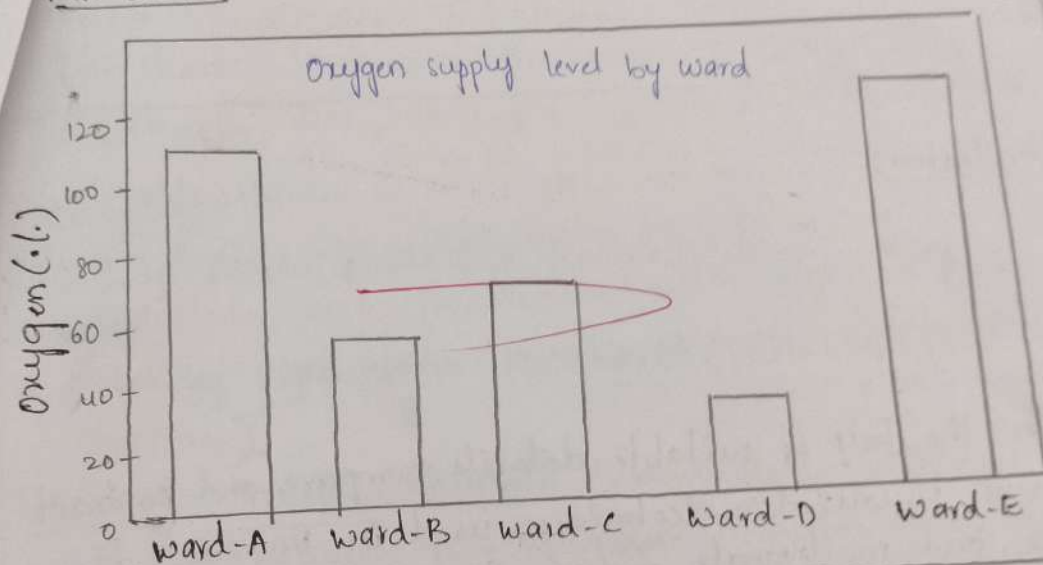 Oxygen supply level by ward
Oxygen (%)
120
100
80
60
40
20
0
Ward-A
Ward-B
Ward-C
Ward-D
Ward-E